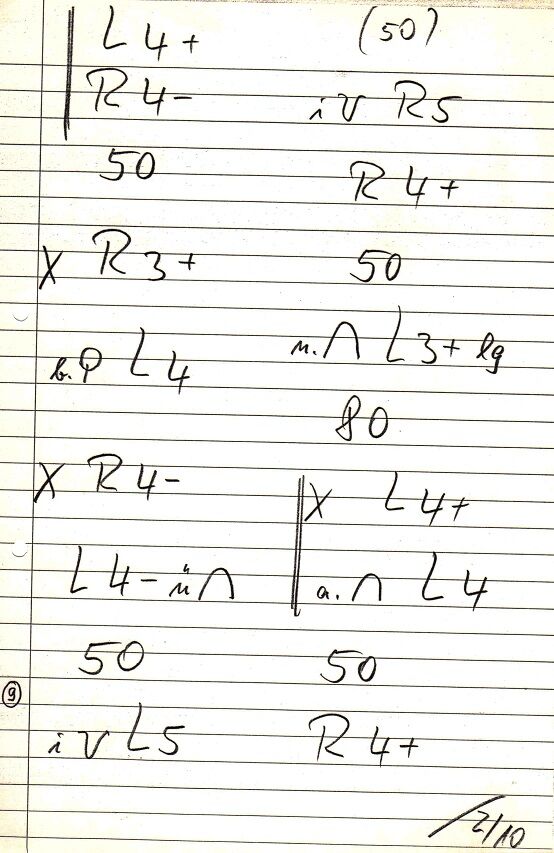 L 4 +
R 4 -
50
X R 3 +
L 4
X R 4 -
L 4 - ü ∩
50
i V L 5
(50)
i V R 5
R 4 +
50
n. ∩ L 3 + lg
80
X L 4 +
a. ∩ L 4
50
R 4 +
9
2/10